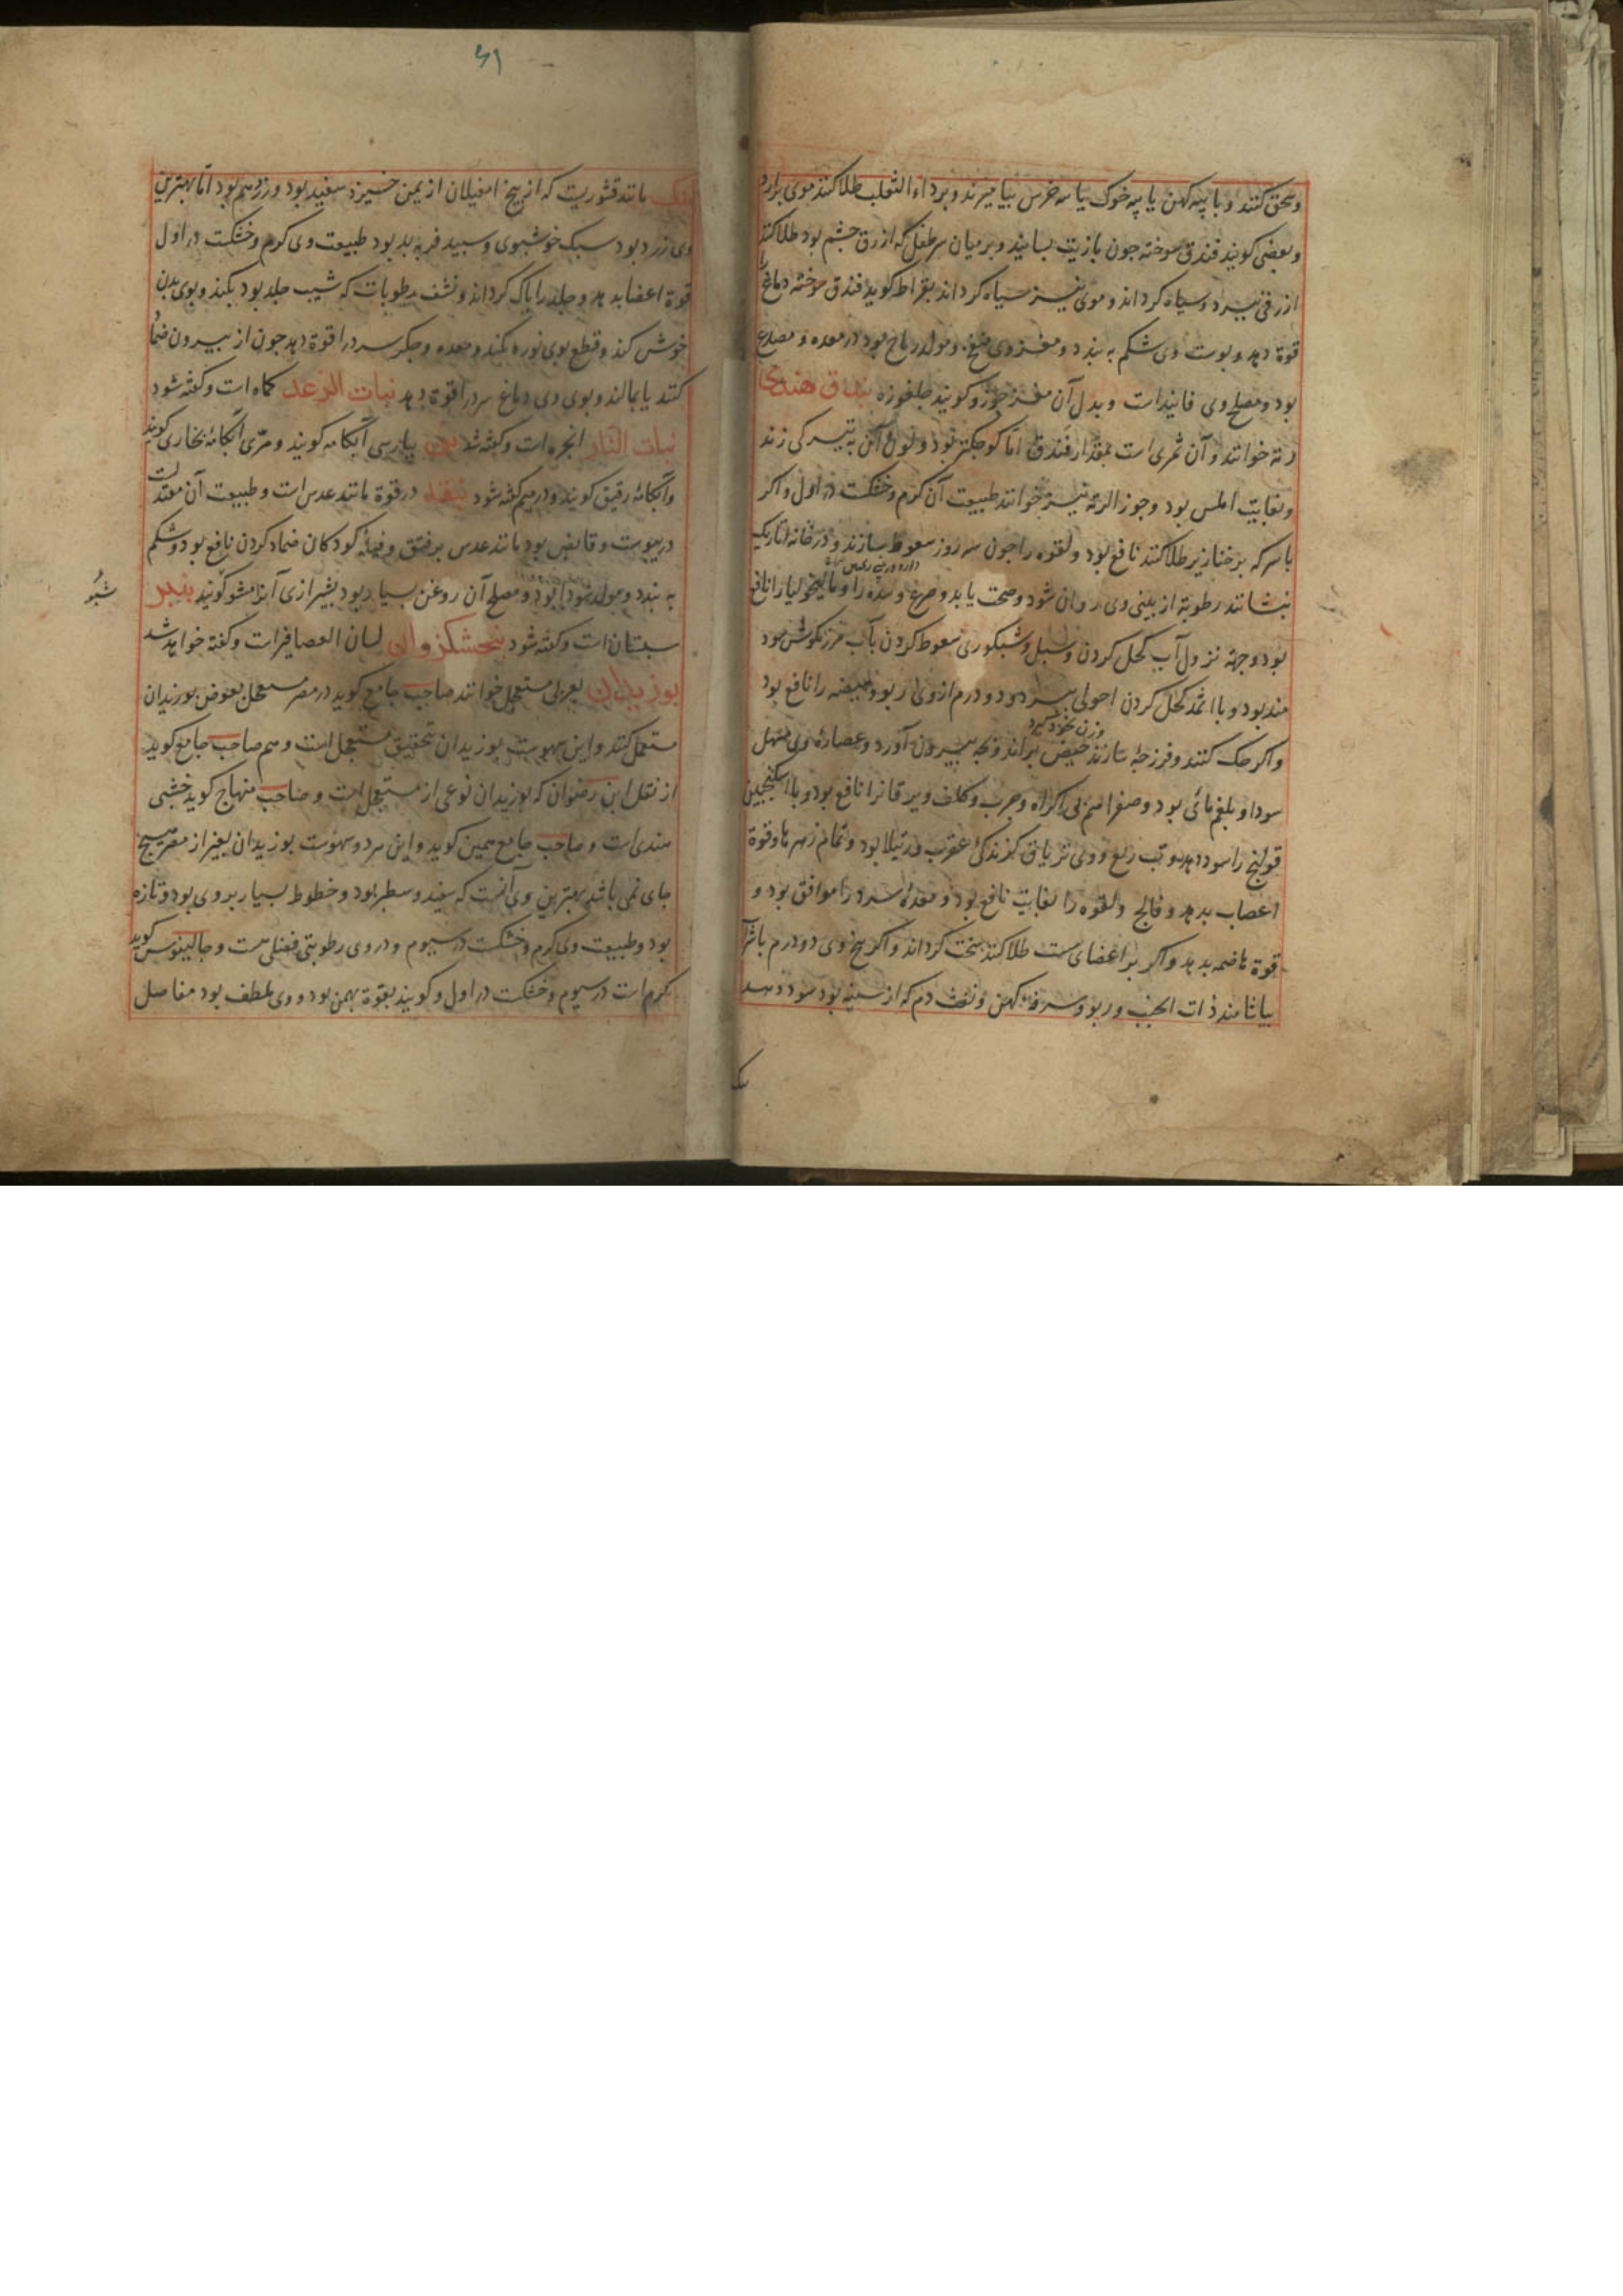 وسحق کنند و با پیه کهن یا پیه خوک یا پیه خرس بیامیزند و بر داء الثعلب طلا کنند موی برآرد
و بعضی کویند فندق سوخته جون بازیت بسایند و بر میان سر طفل که ازرق جشم بود طلا کنند
ازرقی ببرد و سیاه کرداند و موی نیز سیاه کرداند بقراط کوید فندق سوخته دماغ را
قوة دهد و پوست وی شکم به بندد و مغز وی منفخ و مولد ریاح بود در معده و مصدع
بود و مصلح وی فانیذ است و بدل آن مغز جوز و کویند جلغوزه بندق هندی
رته خوانند و آن ثمری است بمقدار فندق اما کوجکتر بود و لون آن به تیرکی زند
و بغایت املس بود و جوز الرته نیز خوانند طبیعت آن کرم و خشکست در اول و اکر
با سرکه بر خنازیر طلا کنند نافع بود و لقوه را جون سه روز سعوط سازند و در خانه تاریک
بنشانند رطوبة از بینی وی روان شود و صحت یابد و صرع و سده را و مالیخولیا را نافع
بود و جهة نزول آب کحل کردن و سبل و شبکوری سعوط کردن بآب مرزنکوش سود
مند بود و با اثمد کحل کردن احولی ببرد و دو درم از وی ربو و هیضه را نافع بود
وزن نخود کیرد
و اکر حک کنند و فرزجه سازند حیض براند و بچه بیرون آورد و عصاره وی مسهل
سودا و بلغم مائی بود و صفرا هم بی اکراه و جرب و کلف و یرقانرا نافع بود و با سکنجبین
قولنج را سود دهد و تب ربع و وی تریاق کزندکی عقرب و رتیلا بود و تمام زهرها و قوة
اعصاب بدهد و فالج و لقوه را بغایت نافع بود و معده سرد را موافق بود و
قوة هاضمه بدهد و اکر بر اعضای سست طلا کنند سخت کرداند و اکر بیخ وی دو درم با شراب
بیاشامند ذات الجنب و ربو و سرفه کهن و نفث دم که از سینه بود سود دهد
۴۱
بنک مانند قشوریست که از بیخ امغیلان از یمن خیزد سفید بود و زرد هم بود اما بهترین
وی زرد بود سبک خوشبوی و سپید فربه بد بود طبیعت وی کرم و خشکست در اول
قوة اعضا بدهد و جلد را پاک کرداند و نشف رطوبات که شیب جلد بود بکند و بوی بدن
خوش کند و قطع بوی نوره بکند و معده و جکر سرد را قوة دهد جون از بیرون ضماد
کنند یا بمالند و بوی وی دماغ سرد را قوة دهد نبات الرعد کماه است و کفته شود
نبات النار انجره است و کفته شد بپارسی آبکامه کویند و مری آبکامۀ بخاری کویند
و آبکامۀ رقیق کویند و در میم کفته شود در قوة مانند عدس است و طبیعت آن معتدلست
در یبوست و قابض بود مانند عدس بر فتق و قیلۀ کودکان ضماد کردن نافع بود و شکم
به بندد و مولد سودا بود و مصلح آن روغن بسیار بود بشیرازی آنرا مشو کویند
سبستان است و کفته شود بنجشکزوان لسان العصافیر است و کفته خواهد شد
بوزیدان بعربی مستعجل خوانند صاحب جامع کوید در مصر مستعجل بعوض بوزیدان
مستعمل کنند و این سهوست بوزیدان بتحقیق مستعجل است و هم صاحب جامع کوید
از نقل ابن رضوان که بوزیدان نوعی از مستعجل است و صاحب منهاج کوید خشبی
هندی است و صاحب جامع همین کوید و این هر دو سهوست بوزیدان بغیر از مصر هیج
جای نمی باشد بهترین وی آنست که سفید و سطبر بود و خطوط بسیار بر وی بود و تازه
بود و طبیعت وی کرم و خشکست در سیوم و در وی رطوبتی فضلی هست و جالینوس کوید
کرم است در سیوم و خشکست در اول و کویند بقوة بهمن بود و وی ملطف بود مفاصل